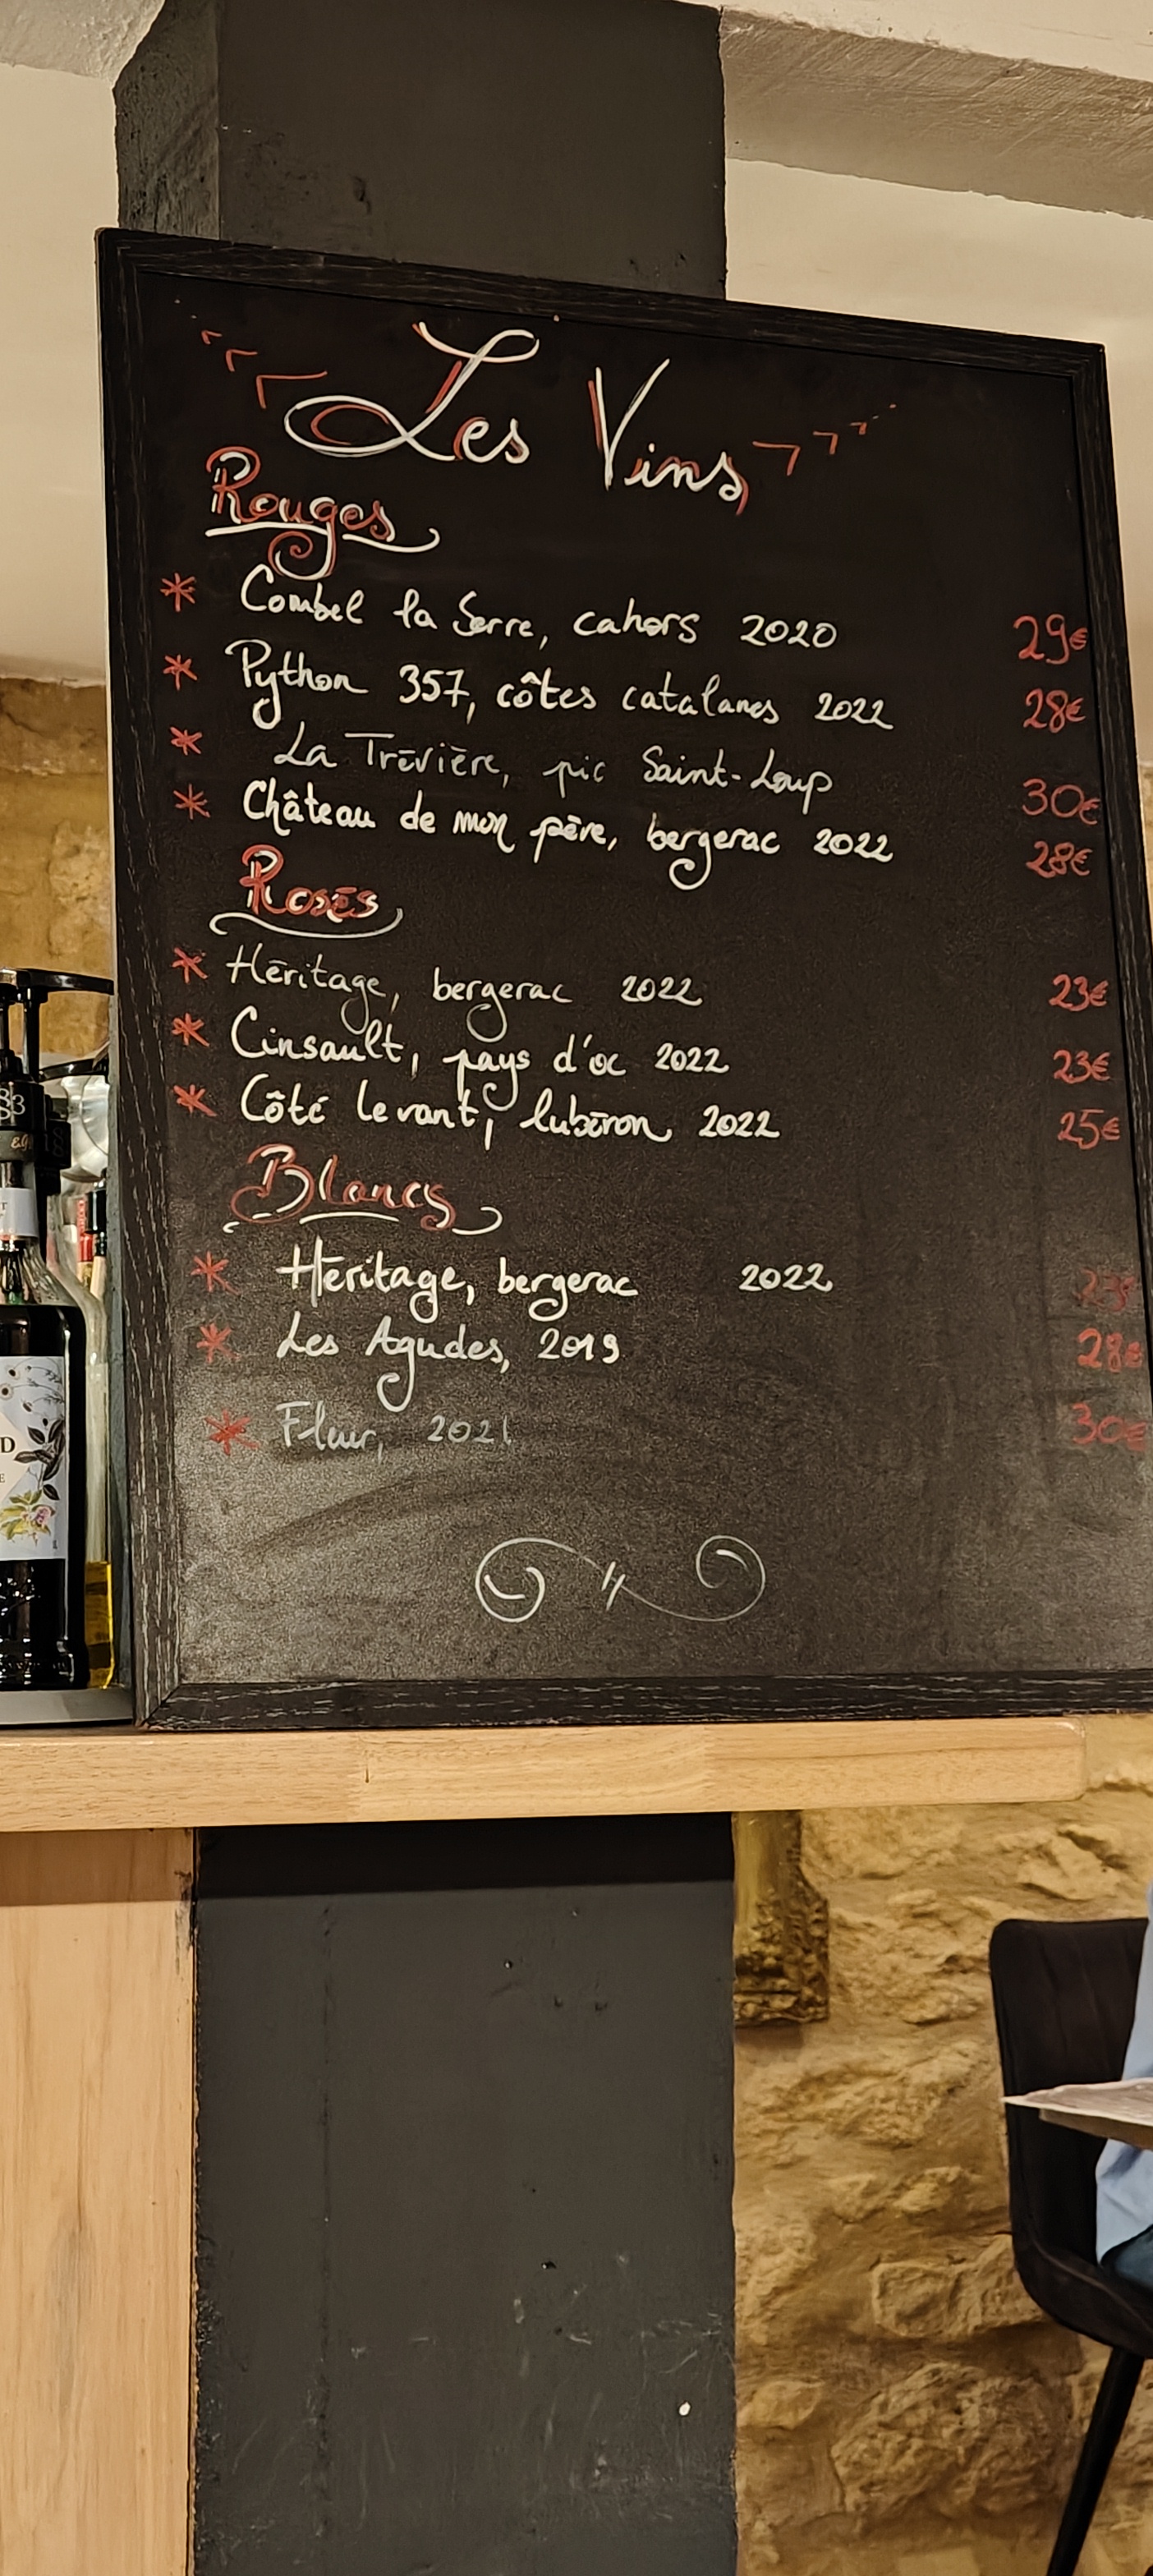 Les Vins
Rouges
* Combel la Serre, cahors 2020 29€
* Python 357, côtes catalanes 2022 28€
* La Trévière, pic Saint-Loup 30€
* Château de mon père, bergerac 2022 28€
Rosés
* Héritage, bergerac 2022 23€
* Cinsault, pays d'oc 2022 23€
* Côté levant, lubéron 2022 25€
Blancs
* Héritage, bergerac 2022 23€
* Les Agudes, 2019 28€
* Fleur, 2021 30€